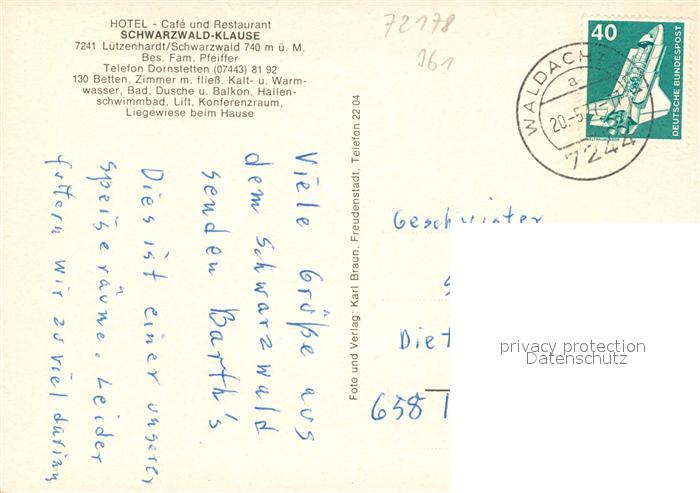 HOTEL - Café und Restaurant
SCHWARZWALD-KLAUSE
7241 Lützenhardt/Schwarzwald 740 m ü. M.
Bes. Fam. Pfeiffer
Telefon Dornstetten (07443) 81 92
130 Betten, Zimmer m. fließ. Kalt- u. Warm-
wasser, Bad, Dusche u. Balkon, Hallen-
schwimmbad, Lift, Konferenzraum,
Liegewiese beim Hause
72178
961
40
DEUTSCHE BUNDESPOST
WALDACHTAL
a
7244
Viele Grüße aus
dem Schwarzwald
senden Barth's
Dies ist einer unserer
Speiseräume. Leider
futtern wir zu viel darin
Foto und Verlag: Karl Braun, Freudenstadt, Telefon 22 04
Geschwister
Diet
658
privacy protection
Datenschutz